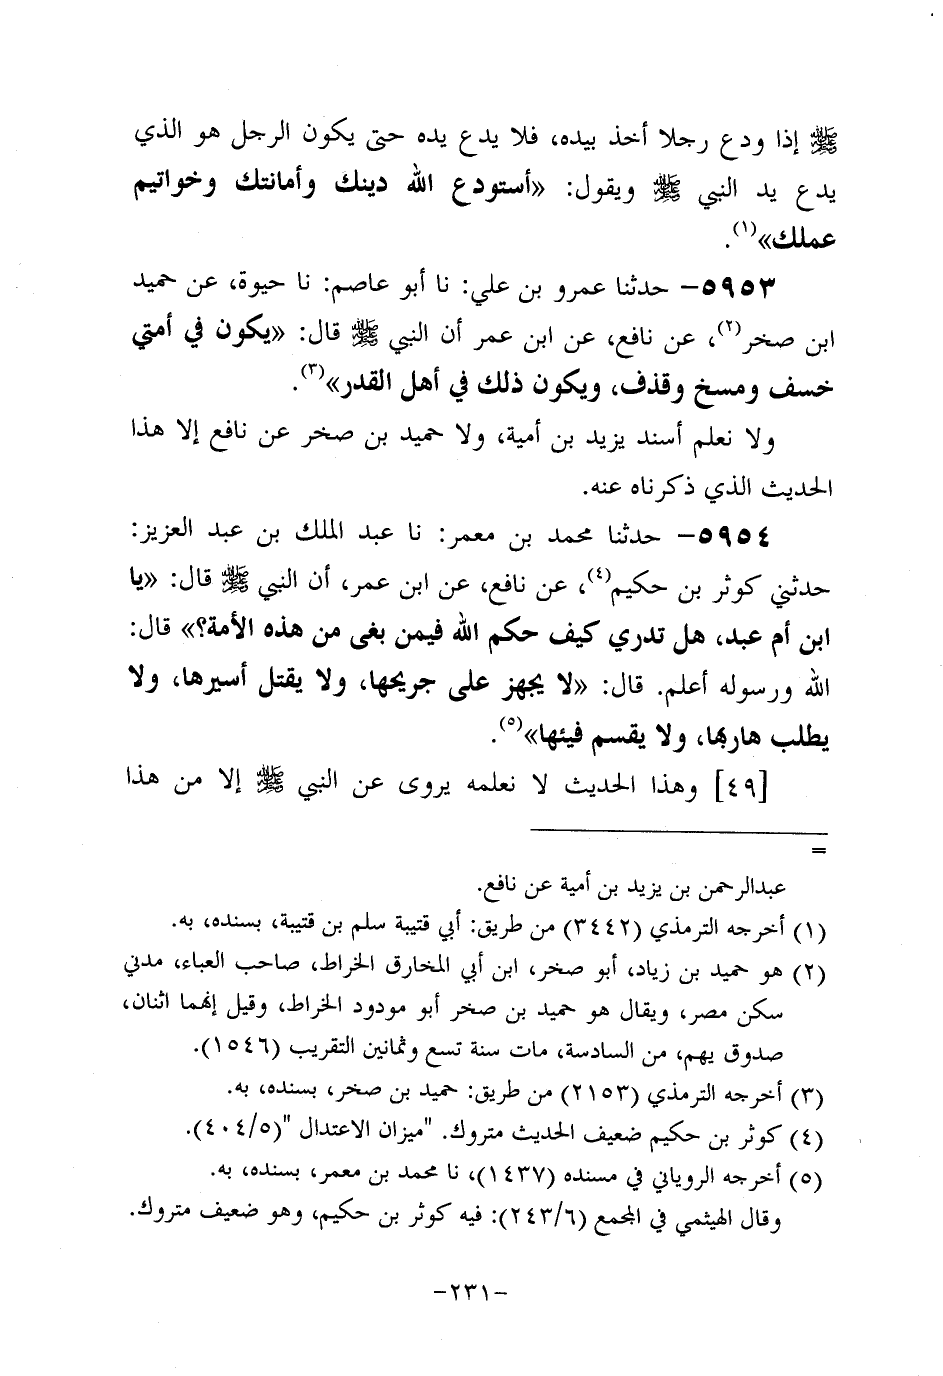 ﷺ إذا ودع رجلا أخذ بيده، فلا يدع يده حتى يكون الرجل هو الذي
يدع يد النبي ﷺ ويقول: «أستودع الله دينك وأمانتك وخواتيم
عملك»(١).
٥٩٥٣– حدثنا عمرو بن علي: نا أبو عاصم: نا حيوة، عن حميد
ابن صخر(٢)، عن نافع، عن ابن عمر أن النبي ﷺ قال: «يكون في أمتي
خسف ومسخ وقذف، ويكون ذلك في أهل القدر»(٣).
ولا نعلم أسند يزيد بن أمية، ولا حميد بن صخر عن نافع إلا هذا
الحديث الذي ذكرناه عنه.
٥٩٥٤– حدثنا محمد بن معمر: نا عبد الملك بن عبد العزيز:
حدثني كوثر بن حكيم(٤)، عن نافع، عن ابن عمر، أن النبي ﷺ قال: «يا
ابن أم عبد، هل تدري كيف حكم الله فيمن بغى من هذه الأمة؟» قال:
الله ورسوله أعلم. قال: «لا يجهز على جريحها، ولا يقتل أسيرها، ولا
يطلب هاربها، ولا يقسم فيئها»(٥).
[٤٩] وهذا الحديث لا نعلمه يروى عن النبي ﷺ إلا من هذا
=
عبدالرحمن بن يزيد بن أمية عن نافع.
(١) أخرجه الترمذي (٣٤٤٢) من طريق: أبي قتيبة سلم بن قتيبة، بسنده، به.
(٢) هو حميد بن زياد، أبو صخر، ابن أبي المخارق الخراط، صاحب العباء، مدني
سكن مصر، ويقال هو حميد بن صخر أبو مودود الخراط، وقيل إنهما اثنان،
صدوق يهم، من السادسة، مات سنة تسع وثمانين التقريب (١٥٤٦).
(٣) أخرجه الترمذي (٢١٥٣) من طريق: حميد بن صخر، بسنده، به.
(٤) كوثر بن حكيم ضعيف الحديث متروك. "ميزان الاعتدال "(٤٠٤/٥).
(٥) أخرجه الروياني في مسنده (١٤٣٧)، نا محمد بن معمر، بسنده، به.
وقال الهيثمي في المجمع (٢٤٣/٦): فيه كوثر بن حكيم، وهو ضعيف متروك.
-٢٣١-